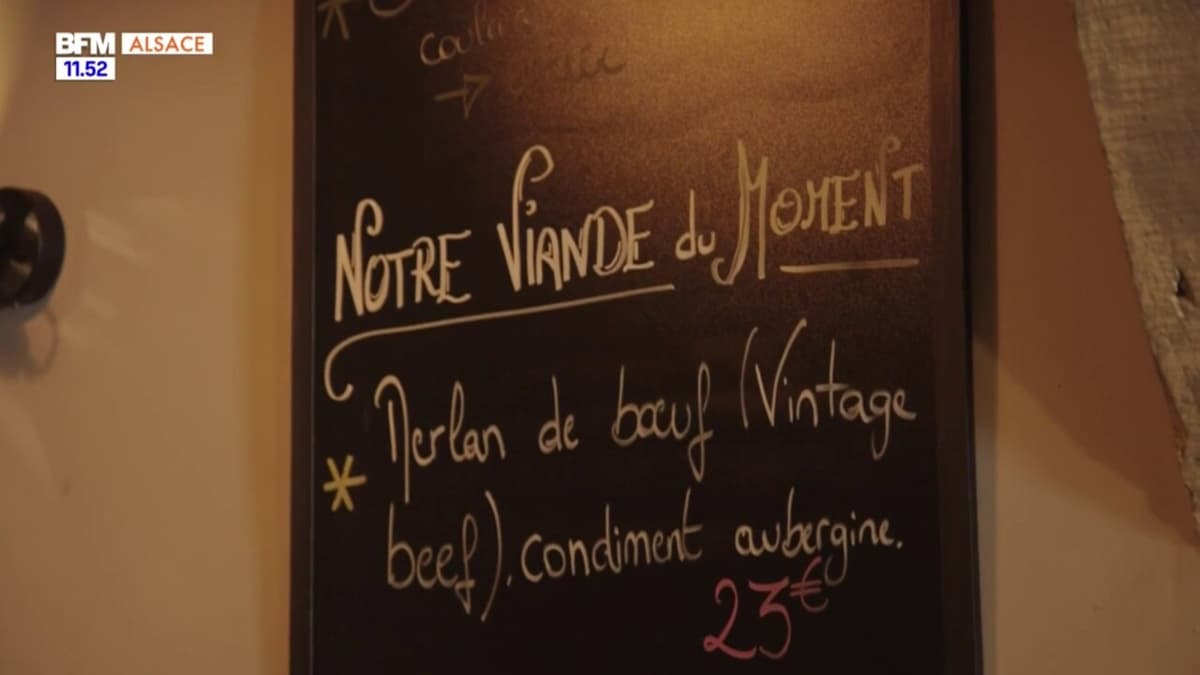 BFM ALSACE
11.52
NOTRE VIANDE du MOMENT
* Merlan de bœuf (Vintage
beef). condiment aubergine.
23€